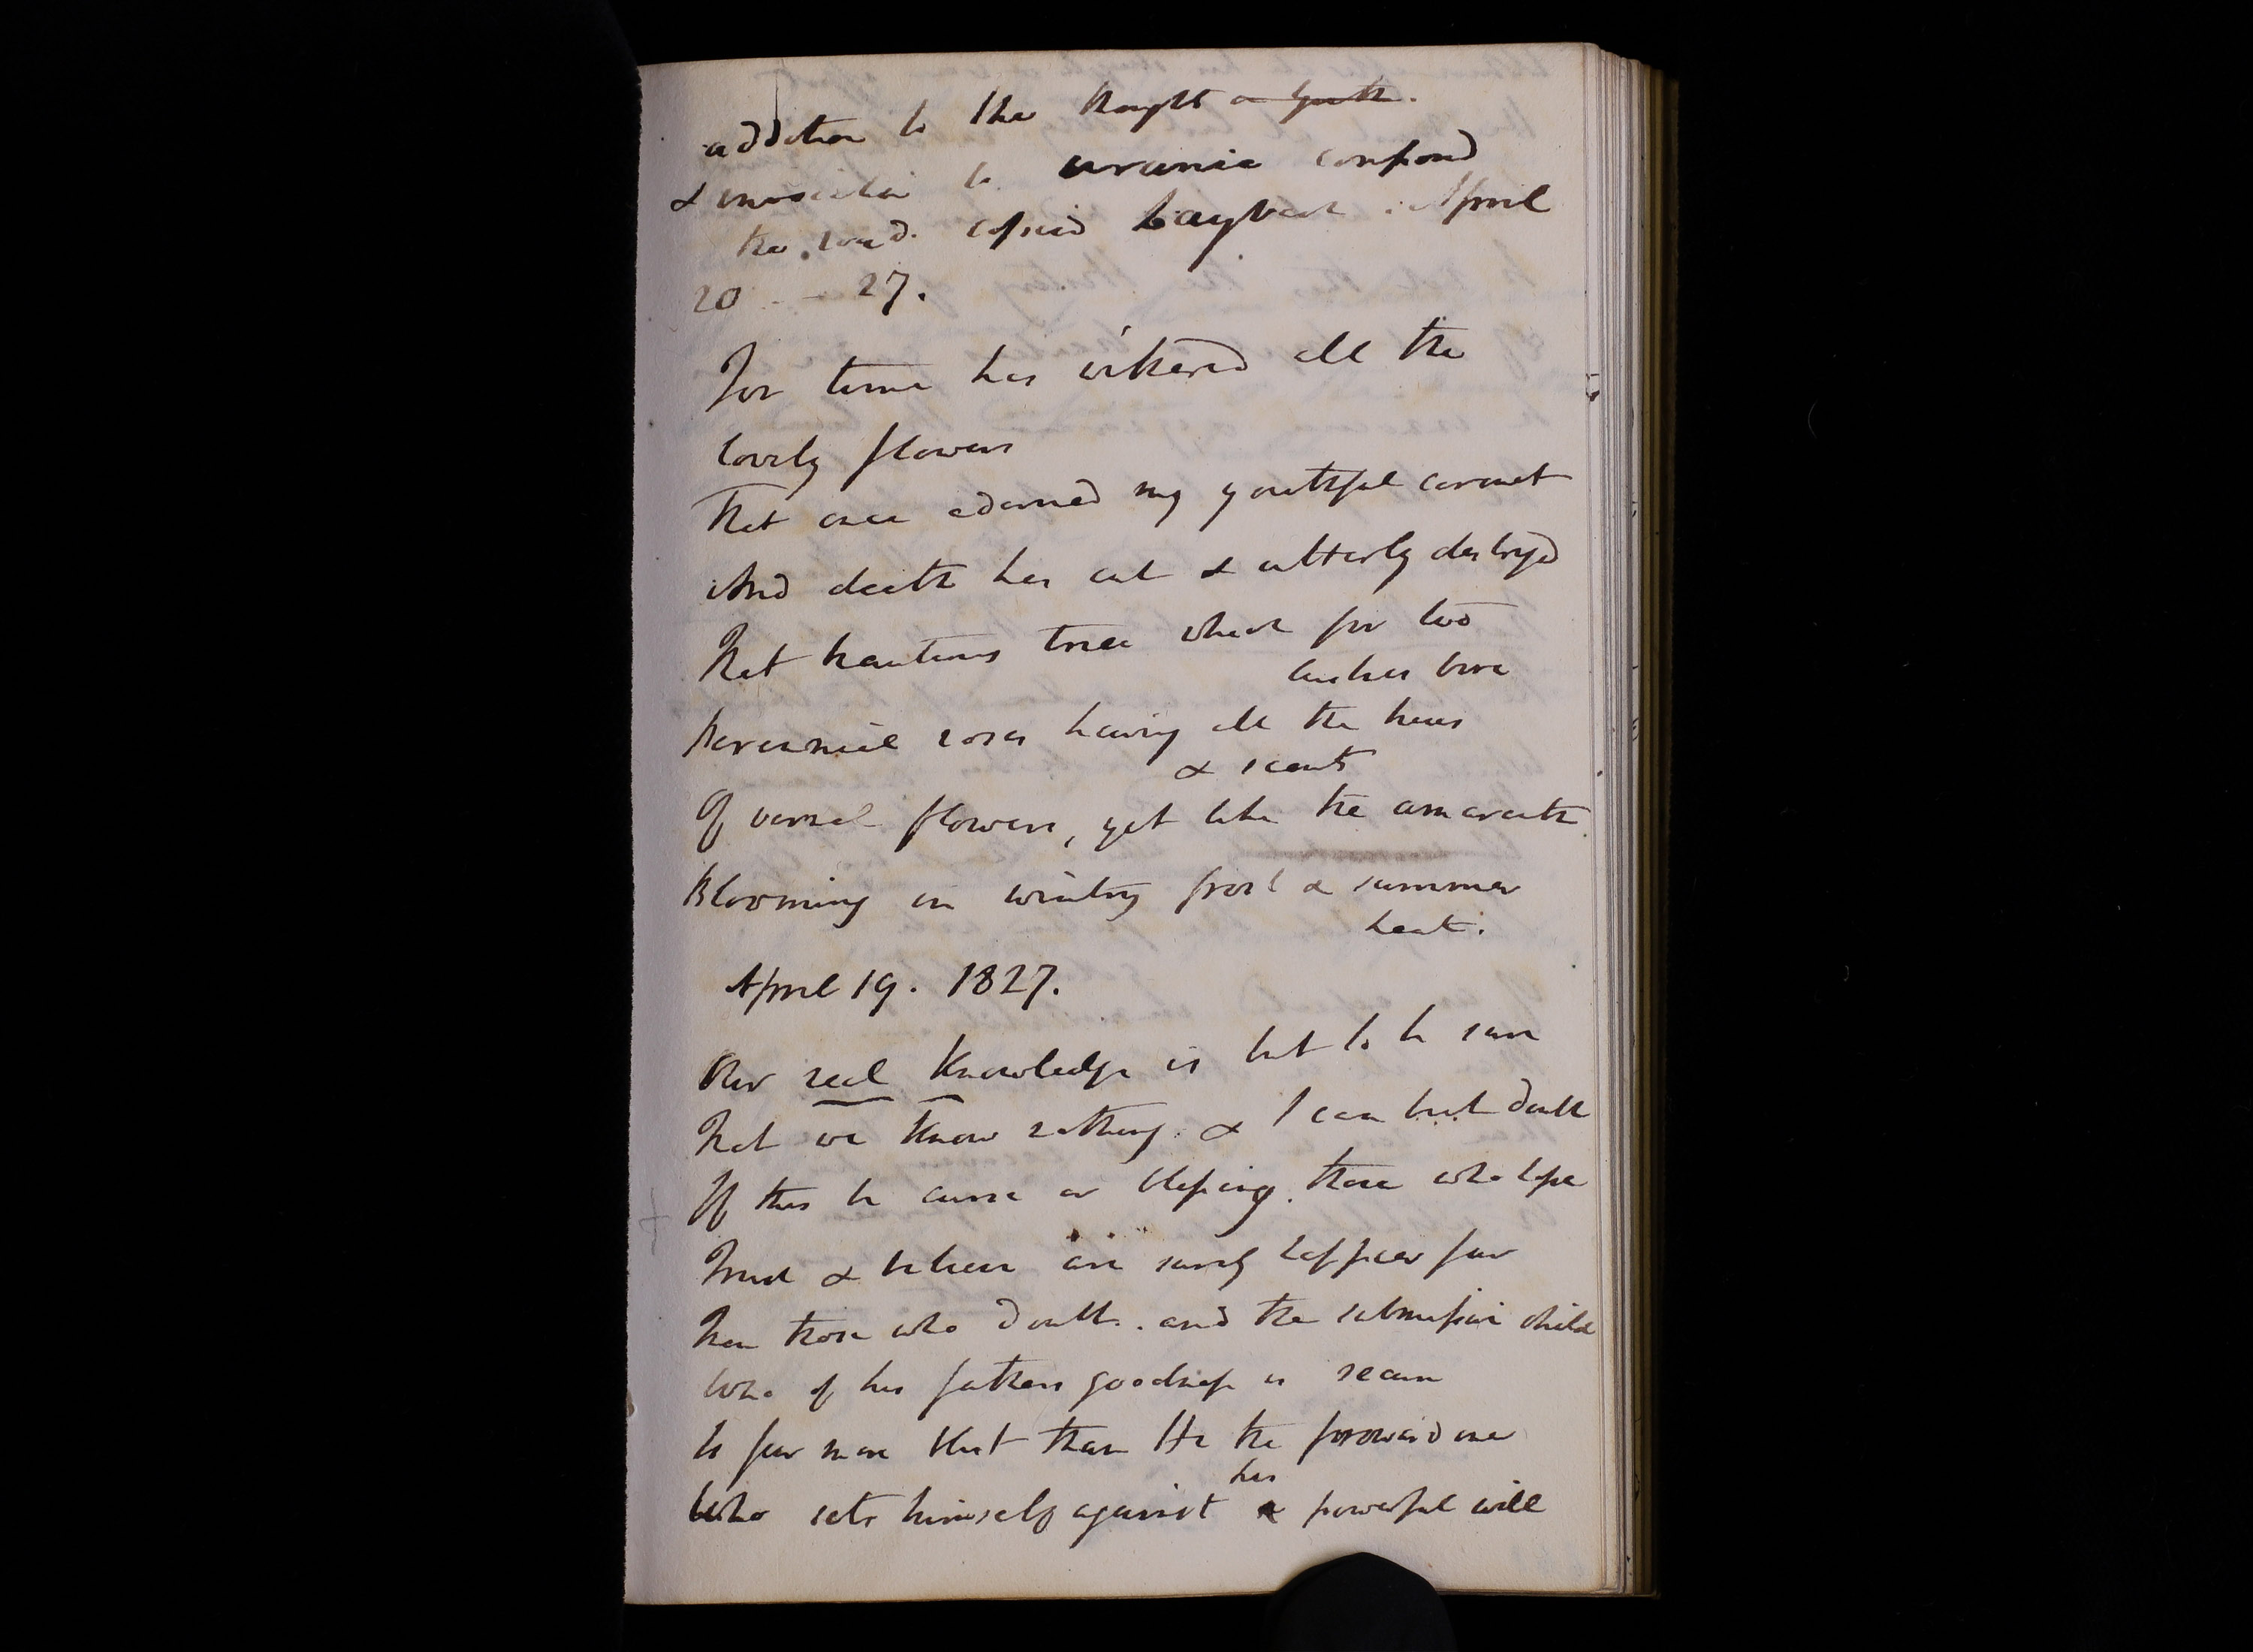 addition to the thought
& to urania composed
the road. copied Laybach April
20 - - 27.
For time has withered all the
lovely flowers
That once adorned my youthful coronet
And death has cut & utterly destroyed
That beauteous tree which for two
lustres bore
Perennial roses having all the hues
& scents
Of vernal flowers, yet like the amaranth
Blooming in wintry frost & summer
heat.
April 19. 1827.
Our real knowledge is but to be sure
That we know nothing. & I can but doubt
If this be curse or blessing. those who hope
Trust & believe are surely happier far
Than those who doubt. and the submissive child
Who of his fathers goodness is secure
Is far more blest than He the froward one
Who sets himself against his powerful will